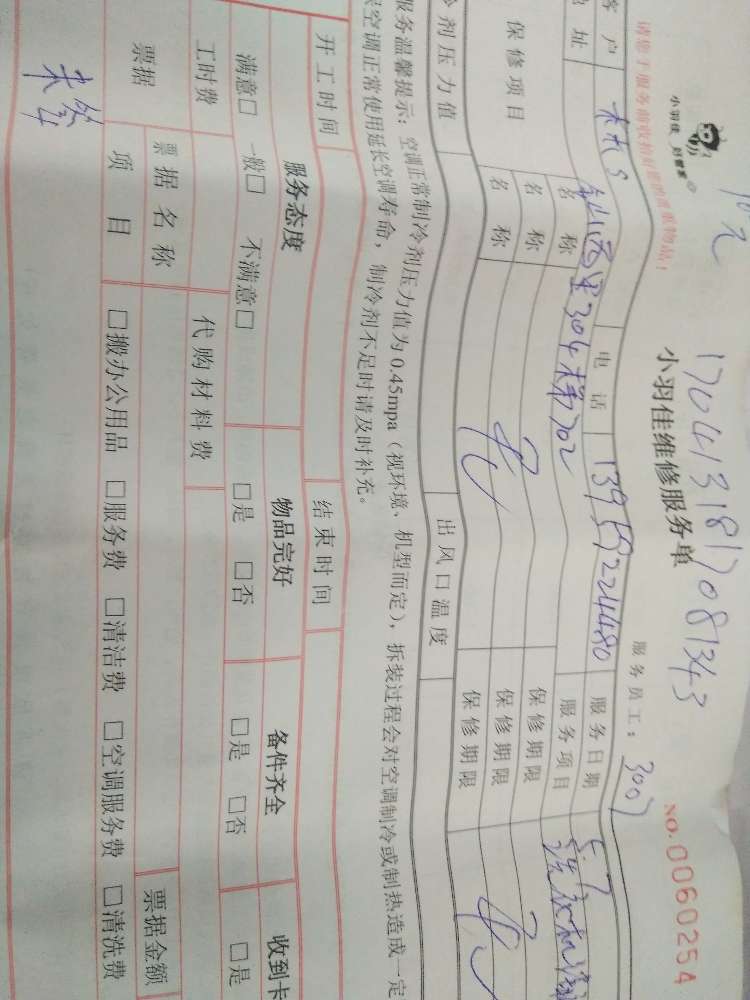 10元
1704131817081343
小羽佳 好管家
小羽佳维修服务单
NO.0060254
请您于服务前收拾好您的贵重物品!
服务员工: 3007
客户
电话
13959224480
服务日期
5.7
地址
西里304 702
服务项目
保修项目
名称
保修期限
名称
保修期限
名称
保修期限
冷剂压力值
出风口温度
服务温馨提示: 空调正常制冷剂压力值为0.45mpa(视环境、机型而定), 拆装过程会对空调制冷或制热造成一定
空调正常使用延长空调寿命, 制冷剂不足时请及时补充。
开工时间
结束时间
服务态度
物品完好
备件齐全
收到卡
满意□ 一般□ 不满意□
□是 □否
□是 □否
□是
工时费
代购材料费
票据
票据名称
票据金额
项目
□搬办公用品 □服务费 □清洁费 □空调服务费 □清洗费